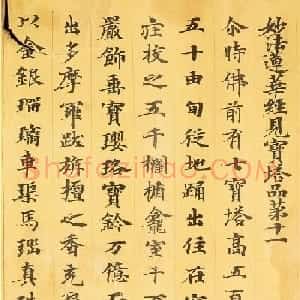 妙法蓮華經見寶塔品第十一
尒時佛前有七寶塔高五
五十由旬從地踊出住在空
莊挍之五千欄楯龕室千
嚴飾垂寶瓔珞寶鈴万億
出多摩羅跋旃檀之香充
以金銀瑠璃車璖馬瑙真珠
Shufaziliao.COM